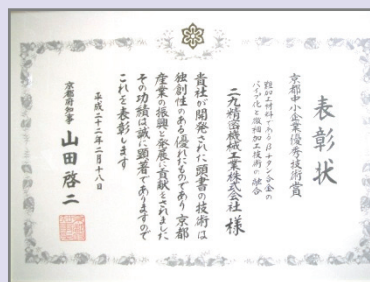 表彰状
京都中小企業優秀技術賞
難加工材料であるβチタン合金の
パイプ化と微細加工技術の融合
二九精密機械工業株式会社 様
貴社が開発された頭書の技術は
独創性のある優れたものであり京都
産業の振興と発展に貢献をされました
その功績は誠に顕著でありますので
これを表彰します
平成二十二年二月十八日
京都府知事 山田啓二